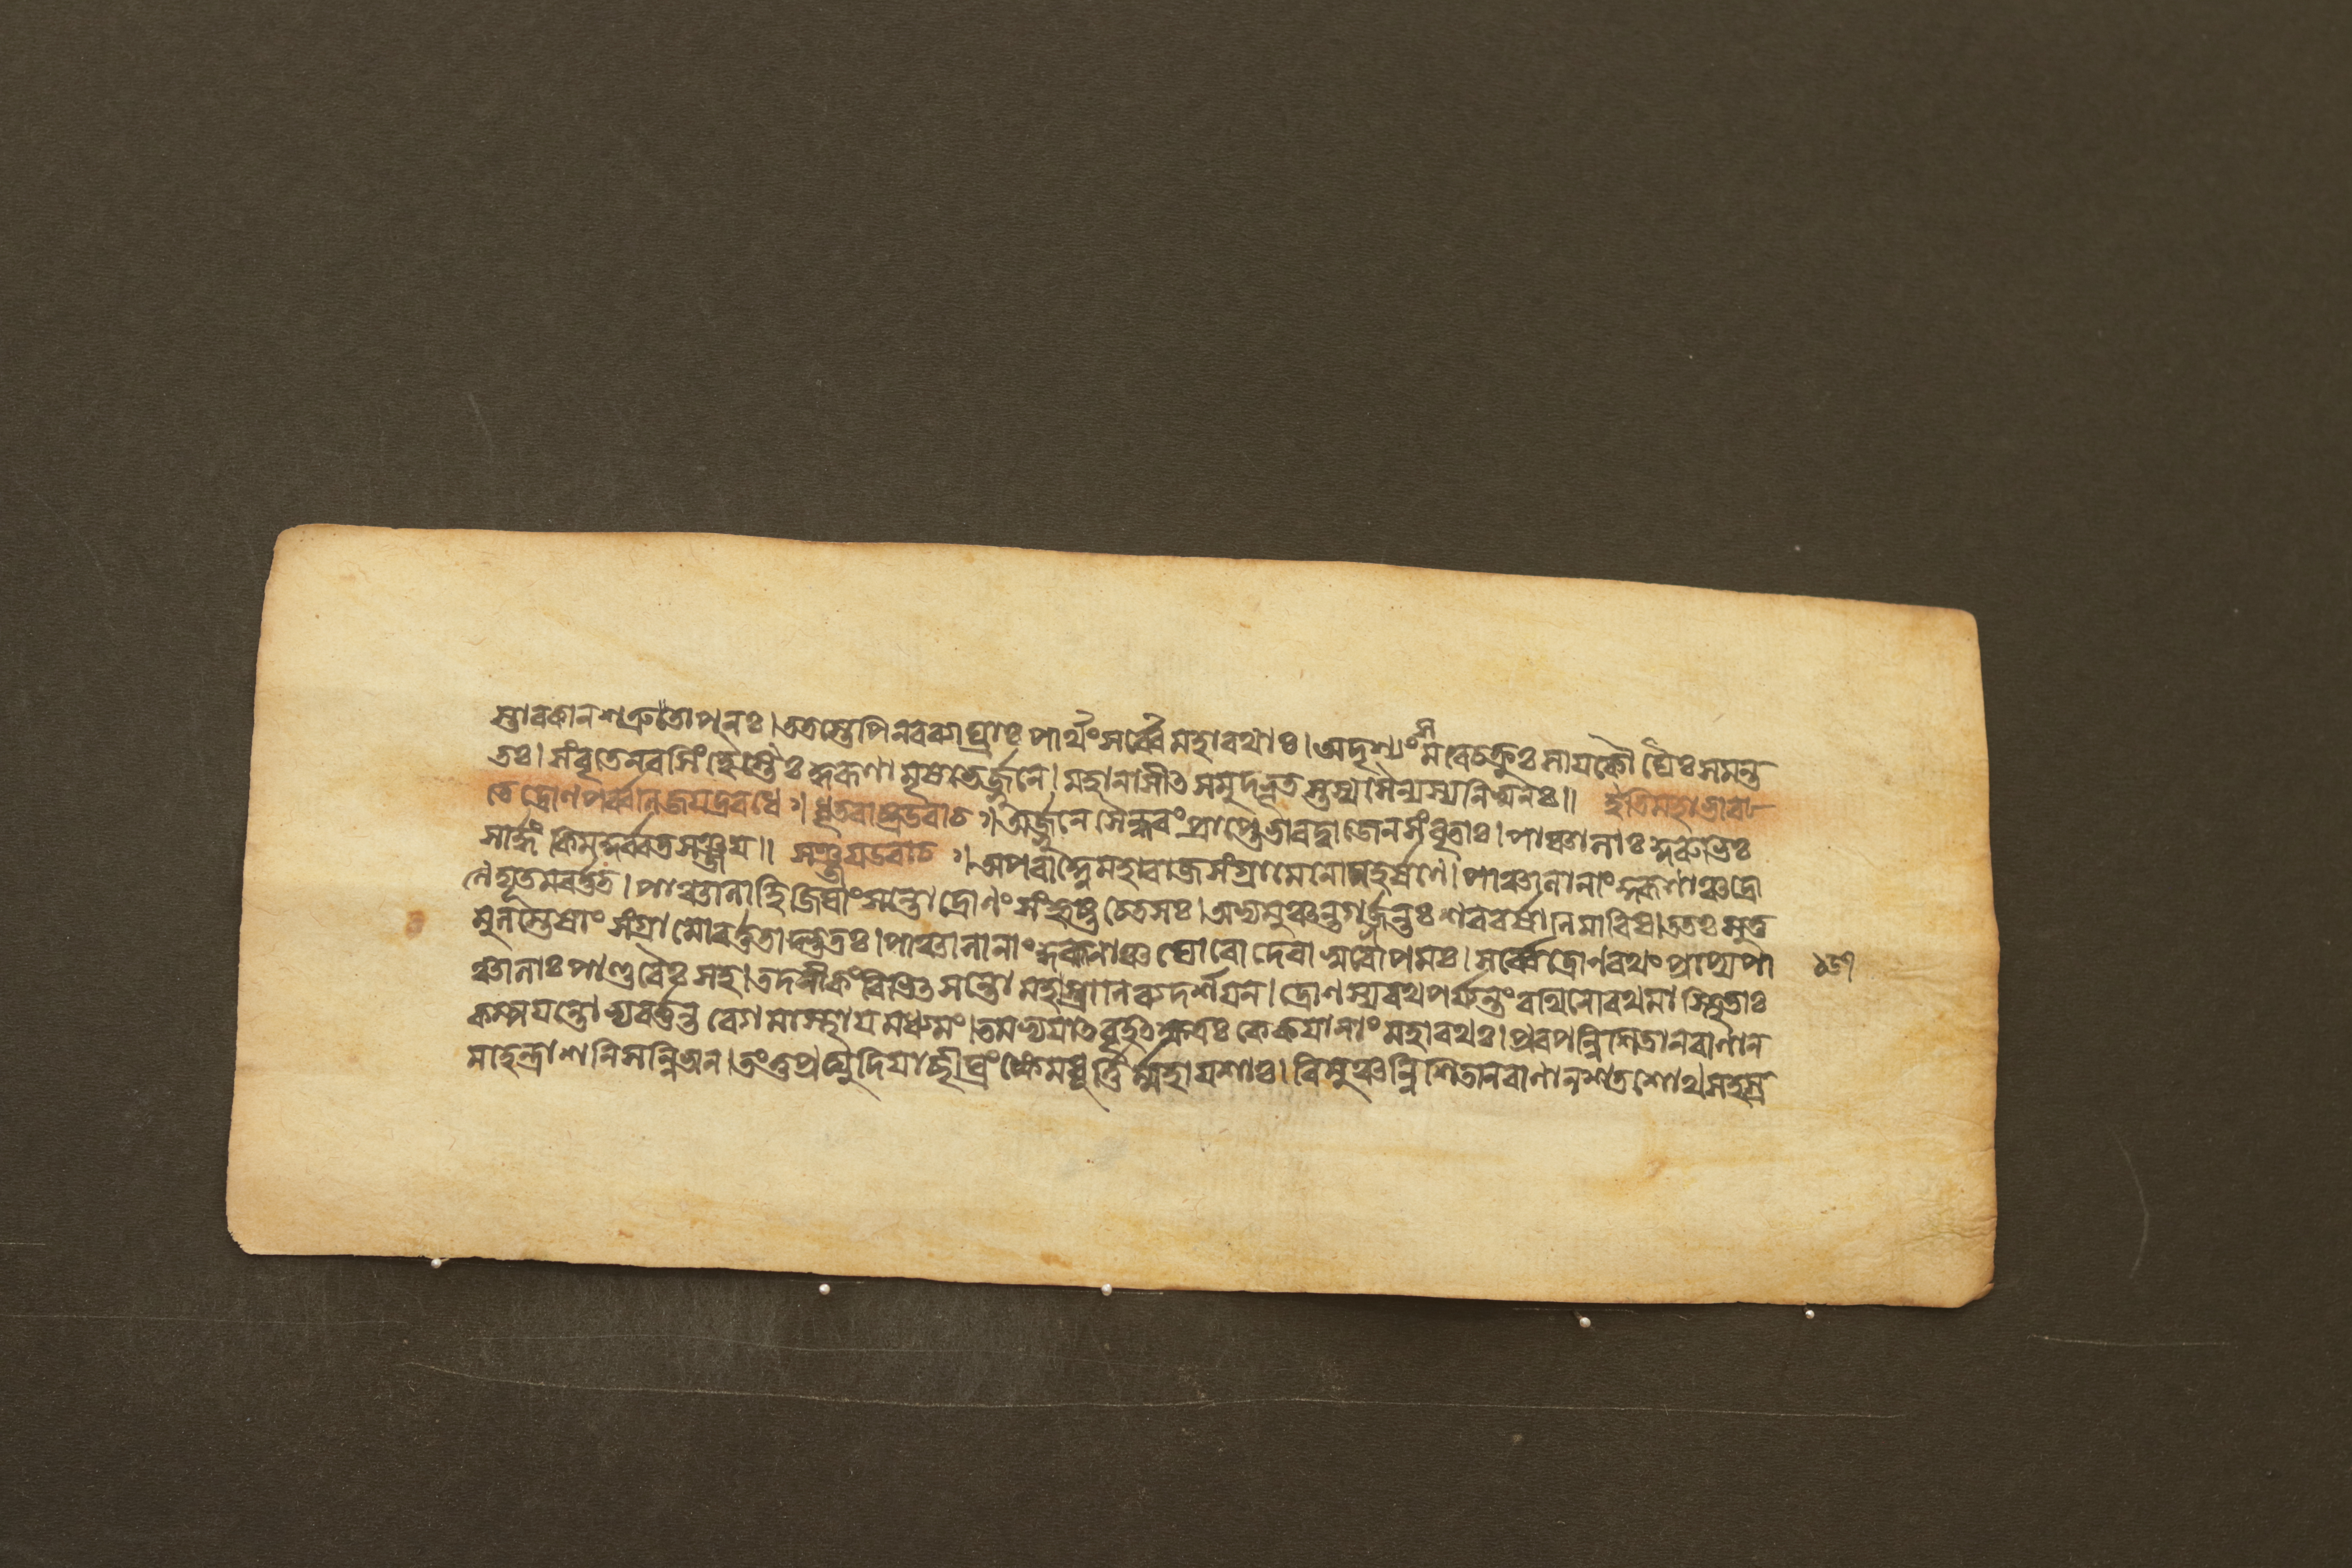 স্তাবকান শত্রুতো পুনঃ। ততস্তেপি নরব্যাঘ্রাঃ পার্থং সর্ব্বে মহারথাঃ। অদৃশ্যং সমরে চক্রুঃ সায়কৌঘৈঃ সমন্ত
তঃ। সংবৃতে নরসিংহৈস্তৈঃ কুরূণামৃষভেঽর্জ্জুনে। মহানাসীৎ সমুদ্ধূতস্তস্য সৈন্যস্য নিঃস্বনঃ॥ ইতি মহাভার
তে দ্রোণপর্ব্বনি জয়দ্রথবধে ৺। ধৃতরাষ্ট্র উবাচ ৺। অর্জ্জুনে সৈন্ধবং প্রাপ্তে ভারদ্বাজেন সংবৃতাঃ। পাঞ্চালাঃ কুরুভিঃ
সার্দ্ধং কিমকুর্ব্বত সঞ্জয়॥ সঞ্জয় উবাচ ৺। অপরাহ্নে মহারাজ সংগ্রামে লোমহর্ষণে। পাঞ্চালানাং কুরূণাঞ্চ দ্রো
ণে দ্যূতমবর্ত্তত। পাঞ্চালা হি জিঘাংসন্তো দ্রোণং সংহৃষ্টচেতসঃ। অভ্যমুঞ্চন্ত গর্জ্জন্তঃ শরবর্ষাণি মারিষ। ততঃ সুতু
মুলস্তেষাং সংগ্রামো বর্ত্ততাদ্ভুতঃ। পাঞ্চালানাং কুরূণাঞ্চ ঘোরো দেবাসুরোপমঃ। সর্ব্বে দ্রোণরথং প্রাপ্য পা
ঞ্চালাঃ পাণ্ডবৈঃ সহ। তদনীকং বিভিৎসন্তো মহাস্ত্রাণি ব্যদর্শয়ন। দ্রোণস্য রথপর্য্যন্তং রথিনো রথমাস্থিতাঃ
কম্পয়ন্তোভ্যবর্ত্তন্ত বেগমাস্থায় মধ্যমং। তমভ্যযাৎ বৃহৎক্ষত্রঃ কেকয়ানাং মহারথঃ। প্রবপন্নিশিতান বাণান
মাহেন্দ্রাশনিসন্নিভান। তং তু প্রত্যুদিয়াচ্ছীঘ্রং ক্ষেমধূর্ত্তির্ম্মহাযশাঃ। বিমুঞ্চন্নিশিতান বাণান শতশোথ সহস্র